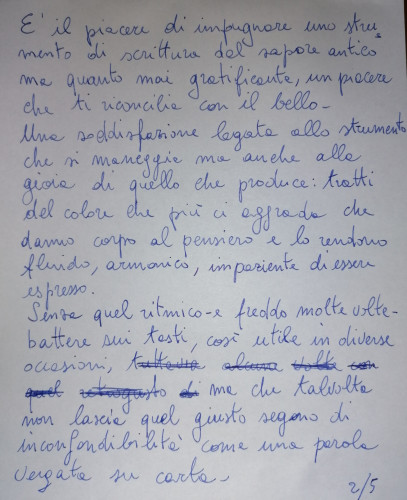 E' il piacere di impugnare uno stru-
mento di scrittura dal sapore antico
ma quanto mai gratificante, un piacere
che ti riconcilia con il bello-
Una soddisfazione legata allo strumento
che si maneggia ma anche alla
gioia di quello che produce: tratti
del colore che più ci aggrada che
danno corpo al pensiero e lo rendono
fluido, armonico, impaziente di essere
espresso.
Senza quel ritmico-e freddo molte volte-
battere sui tasti, così utile in diverse
occasioni, tuttavia alcune volte con
quel retrogusto di ma che talvolta
non lascia quel giusto segno di
inconfondibilità come una parola
vergata su carta-
2/5